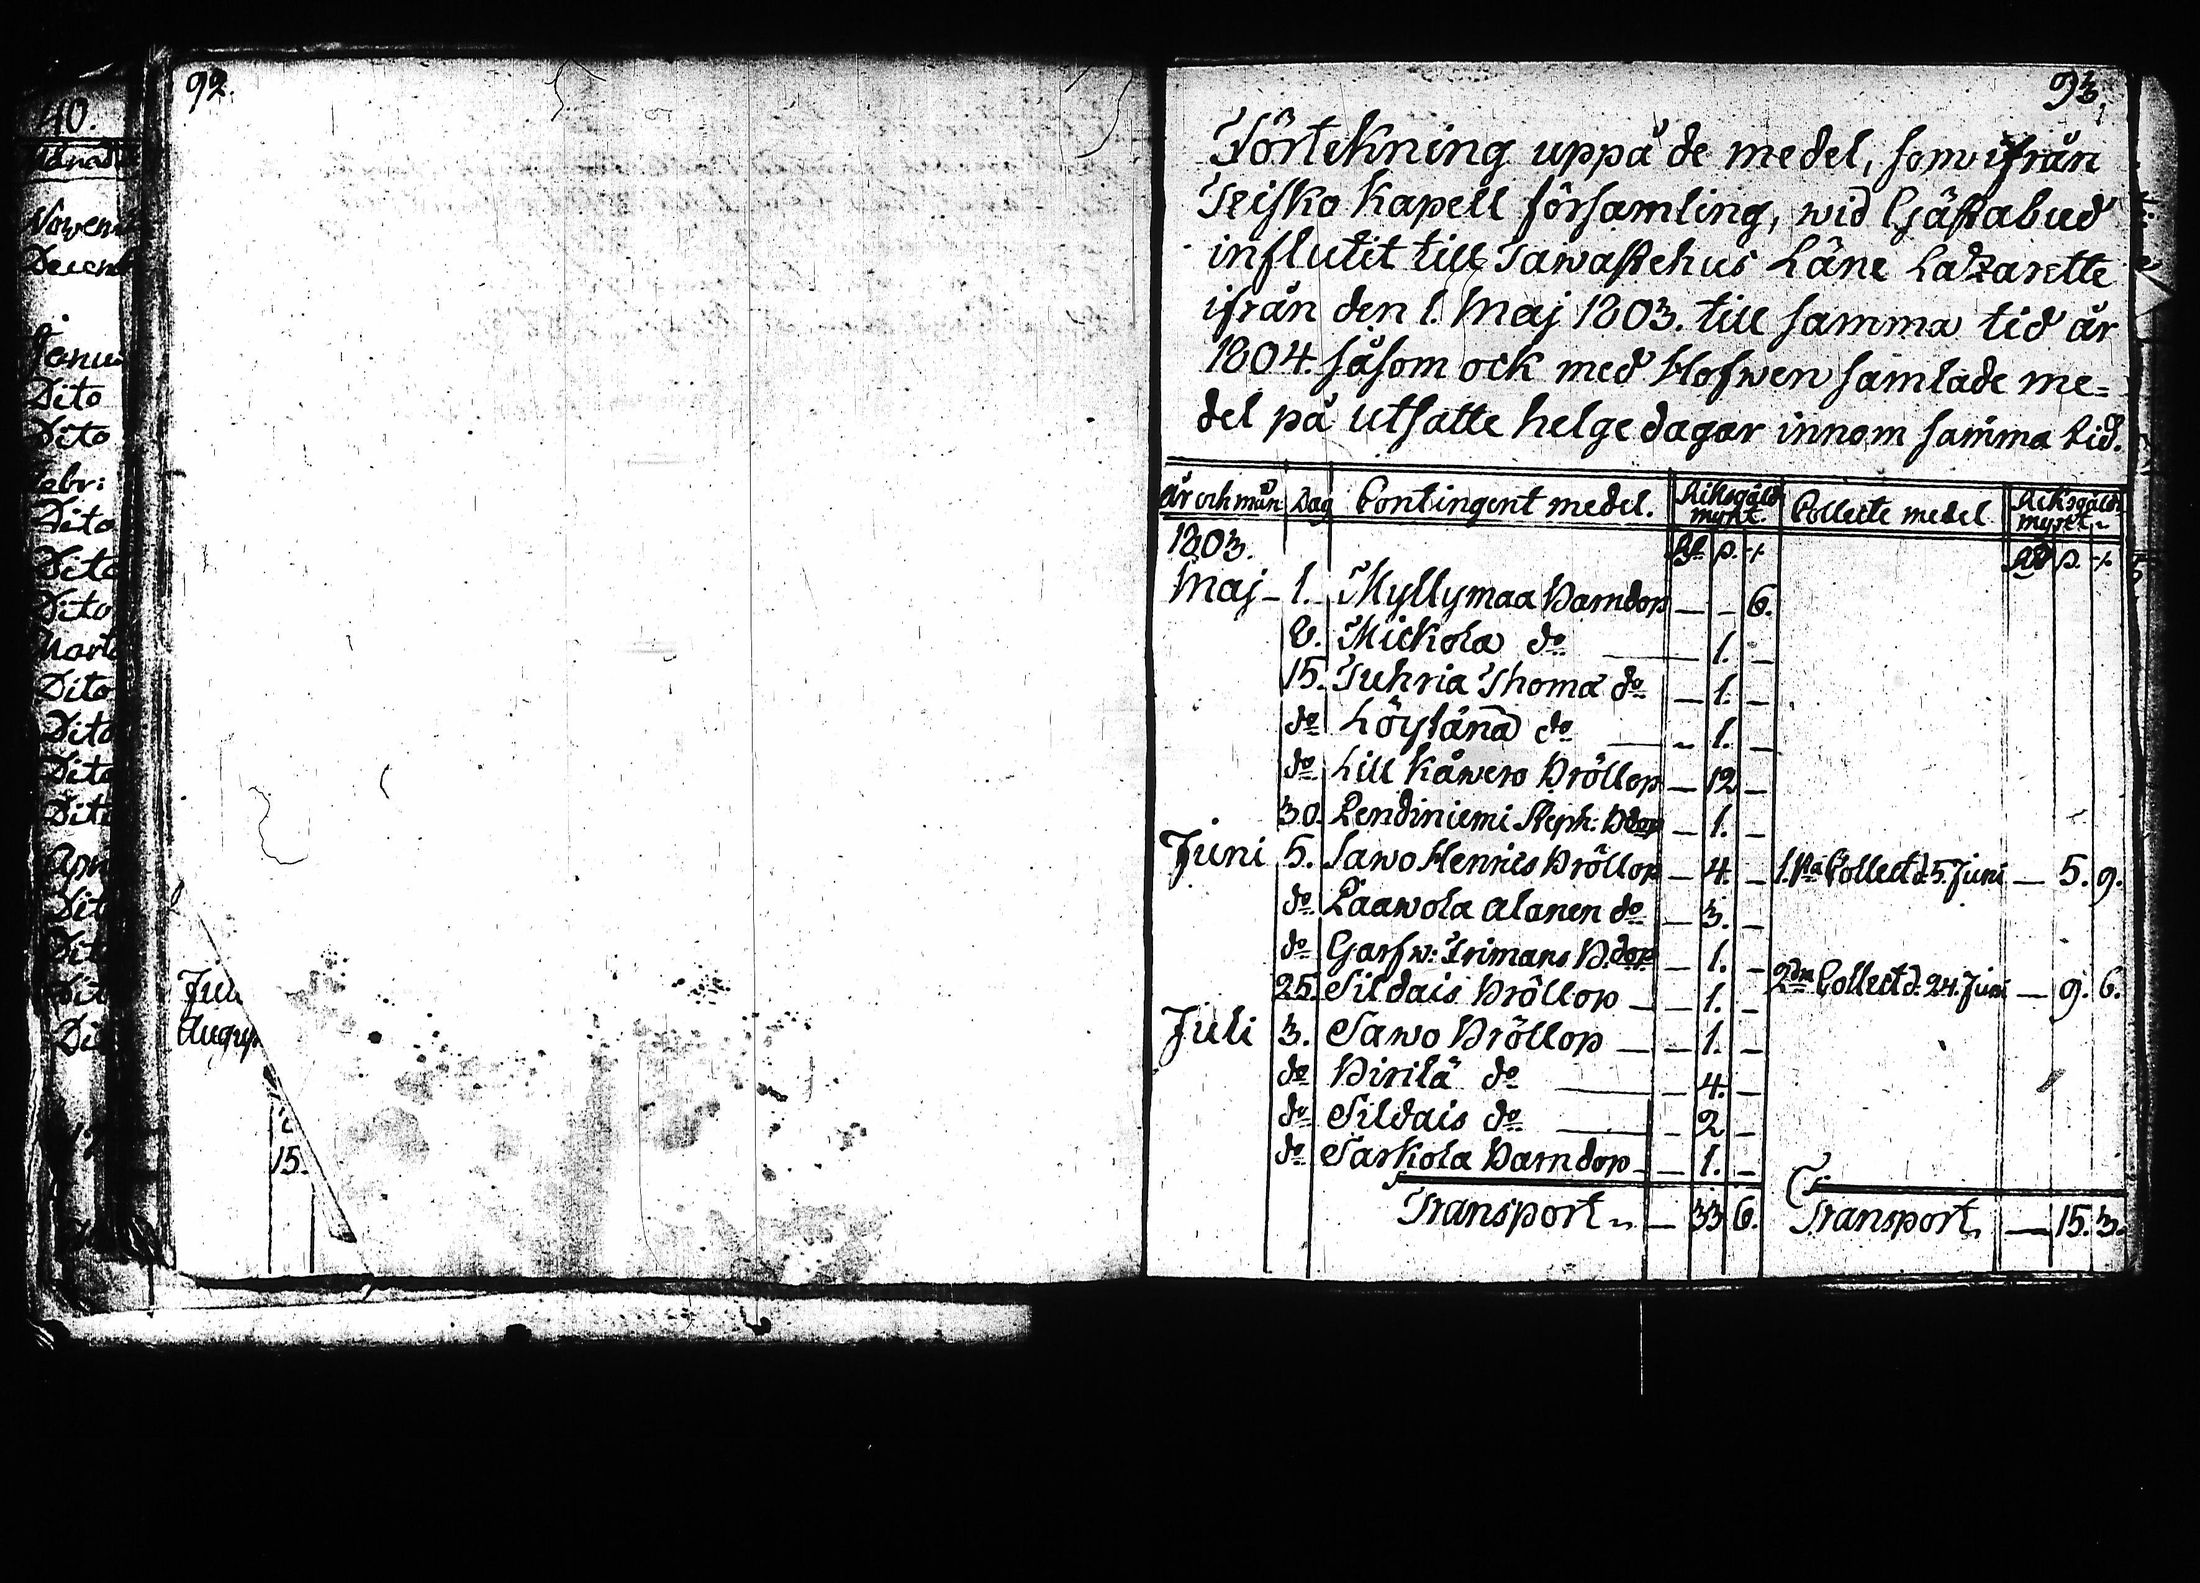 40.
Månad
Novem
Decemb
Janu
Dito
Dito
Febr:
Dito
Dito
Dito
Marti
Dito
Dito
Dito
Dito
Apri
Dit
Dit
Dit
Di
92.
Juli
August
15.
93.
Förtekning uppå de medel, som ifrån
Teisko Kapell församling, wid Gästabud
influtit till Tawastehus Läns Lazarette
ifrån den 1. Maj 1803. till samma tid år
1804. såsom ock med Hofwen samlade me=
del på utsatte helgedagar innom samma tid.
År och mån Dag Contingent medel. Riksgäld mynt. Collecte medel Riksgälds mynt
1803. Rd s. r. Rd s. r.
Maj – 1. Myllymaa Barndop — – 6.
8. Mickola do — 1. –
15. Tuhria Thoma do — 1. –
do Löylänä do — 1. –
do Lill Kåwero Bröllop — 12 –
30. Pendiniemi Steph: Bdop – 1. –
Juni 5. Sawo Henrics Bröllop – 4. – 1.sta Collect d. 5. Juni — 5. 9.
do Paawola Alanen do – 3. –
do Garfw: Trimans B.dop – 1. –
25. Sildais Bröllop — 1. – 2dra Collect d. 24. Juni — 9. 6.
Juli 3. Sawo Bröllop — 1. –
do Birilä do — 4. –
do Sildais do – 2 –
do Sarkola Barndop – 1. –
Transport — 33 6. Transport — 15. 3.